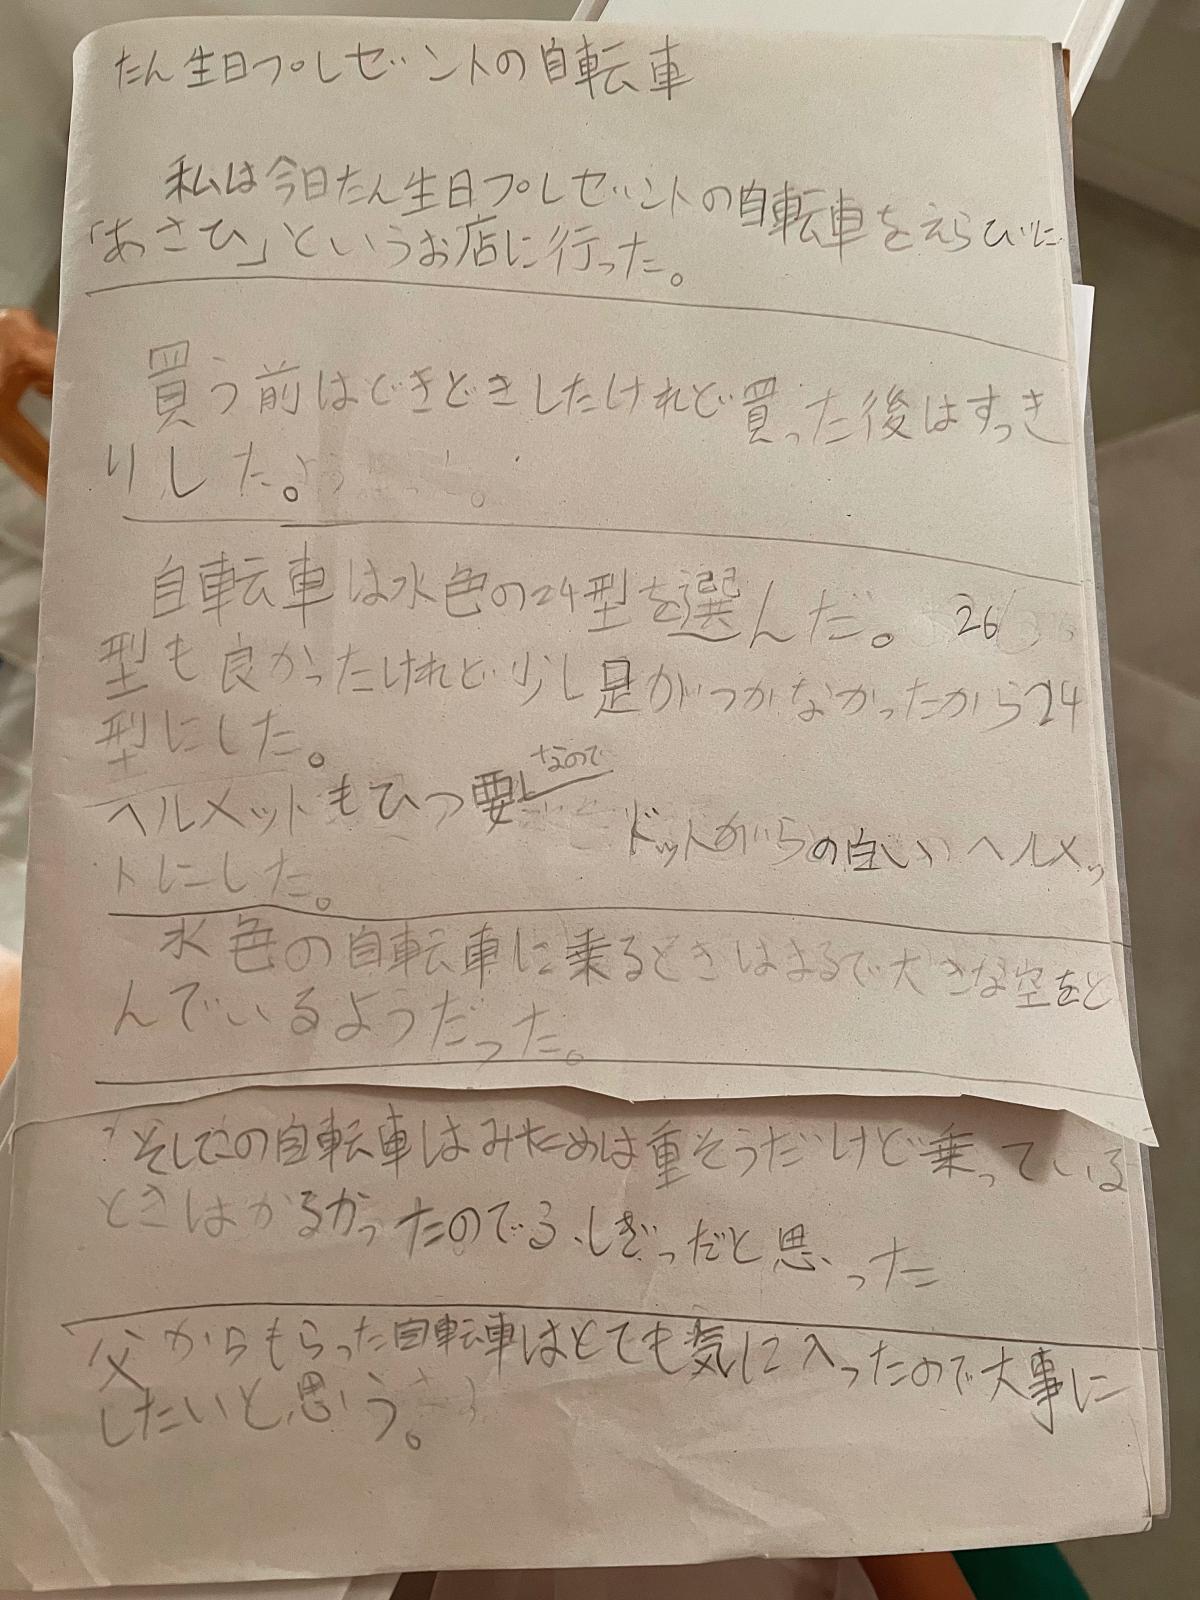 たん生日プレゼントの自転車
私は今日たん生日プレゼントの自転車をえらびに
「あさひ」というお店に行った。
買う前はどきどきしたけれど買った後はすっき
りした。
自転車は水色の24型を選んだ。26
型も良かったけれど少し足がつかなかったから24
型にした。
ヘルメットもひつ要なので ドットがらの白いヘルメッ
トにした。
水色の自転車に乗るときはまるで大きな空をと
んでいるようだった。
そしてこの自転車はみためは重そうだけど乗っている
ときはかるかったので ふしぎだと思った
父からもらった自転車はとても気に入ったので大事に
したいと思う。